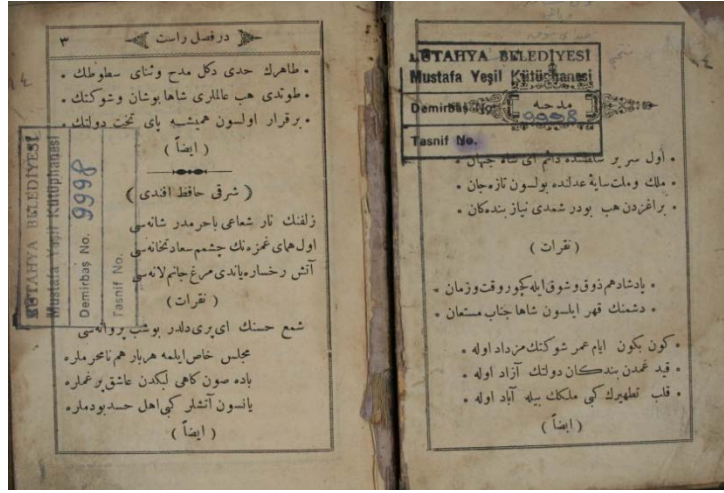 KÜTAHYA BELEDİYESİ
Mustafa Yeşil Kütüphanesi
Demirbaş No. 9998
Tasnif No.
مدحیه
• اول سریر سلطنتده دائم ای شاه جهان •
• ملك وملت سایهٔ عدلنده بولسون تازه جان •
• براغزدن هب بودر شمدی نیاز بندەكان •
( نقرات )
• پادشاهم ذوق وشوق ایله كچور وقت وزمان •
• دشمنك قهر ایلسون شاها جناب مستعان •
• كون بكون ایام عمر شوكتك مزداد اوله •
• قید غمدن بندكان دولتك آزاد اوله •
• قلب تطهیرك كبی ملكك بیله آباد اوله •
( ایضاً )
در فصل راست
٣
• طاهرك حدی دكل مدح وثنای سطوتك •
• طوتدی هب عالملری شاها بوشان وشوكتك •
• برقرار اولسون همیشه پای تخت دولتك •
( ایضاً )
( شرقی حافظ افندی )
زلفنك تار شعاعی باحر مدر شانه سی
اول همای غمزه نك چشمم سعادتخانه سی
آتش رخساره یاندی مرغ جانم لانه سی
( نقرات )
شمع حسنك ای پری دلدر بوشب پروانه سی
مجلس خاص ایلمه هربار هم نامحرملره
باده صون كاهی لبكدن عاشق پر غملره
یانسون آتشلر كبی اهل حسد بودملره
( ایضاً )
KÜTAHYA BELEDİYESİ
Mustafa Yeşil Kütüphanesi
Demirbaş No. 9998
Tasnif No.